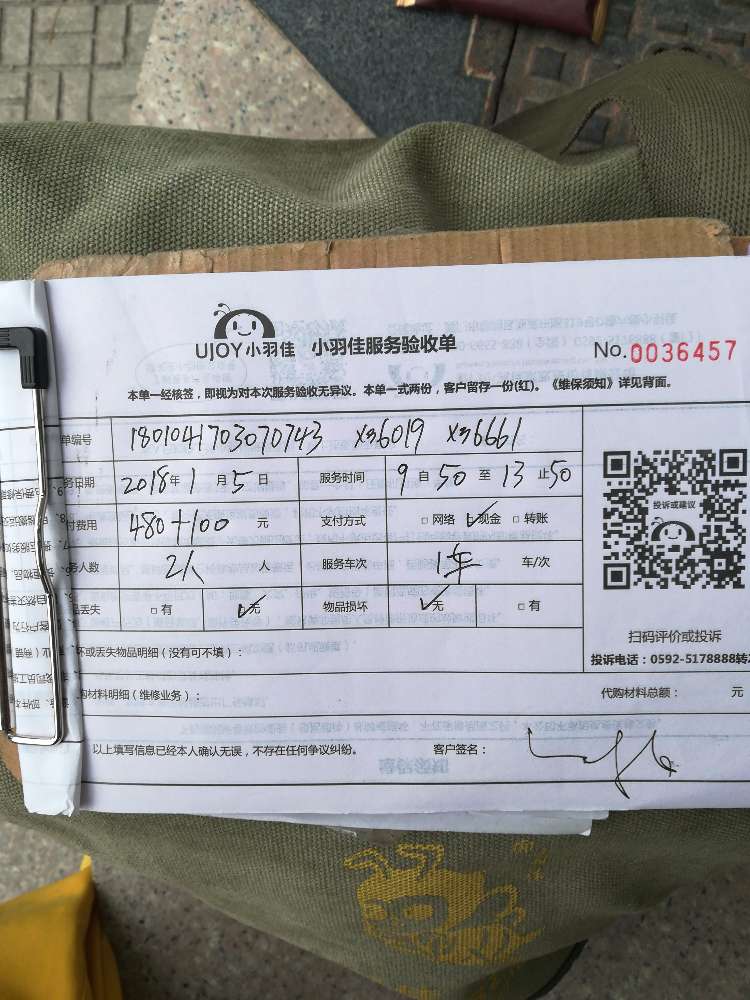 UJOY小羽佳 小羽佳服务验收单
No.0036457
本单一经核签，即视为对本次服务验收无异议。本单一式两份，客户留存一份(红)。《维保须知》详见背面。
单编号 1801041703070743 X36019 X36661
务日期 2018年1月5日 服务时间 9自50至13止50
付费用 480+100 元 支付方式 □网络 ☑现金 □转账
务人数 2人 人 服务车次 1车 车/次
品丢失 □有 ☑无 物品损坏 ☑无 □有
坏或丢失物品明细（没有可不填）：
购材料明细（维修业务）： 代购材料总额： 元
以上填写信息已经本人确认无误，不存在任何争议纠纷。 客户签名：
投诉或建议
扫码评价或投诉
投诉电话：0592-5178888转